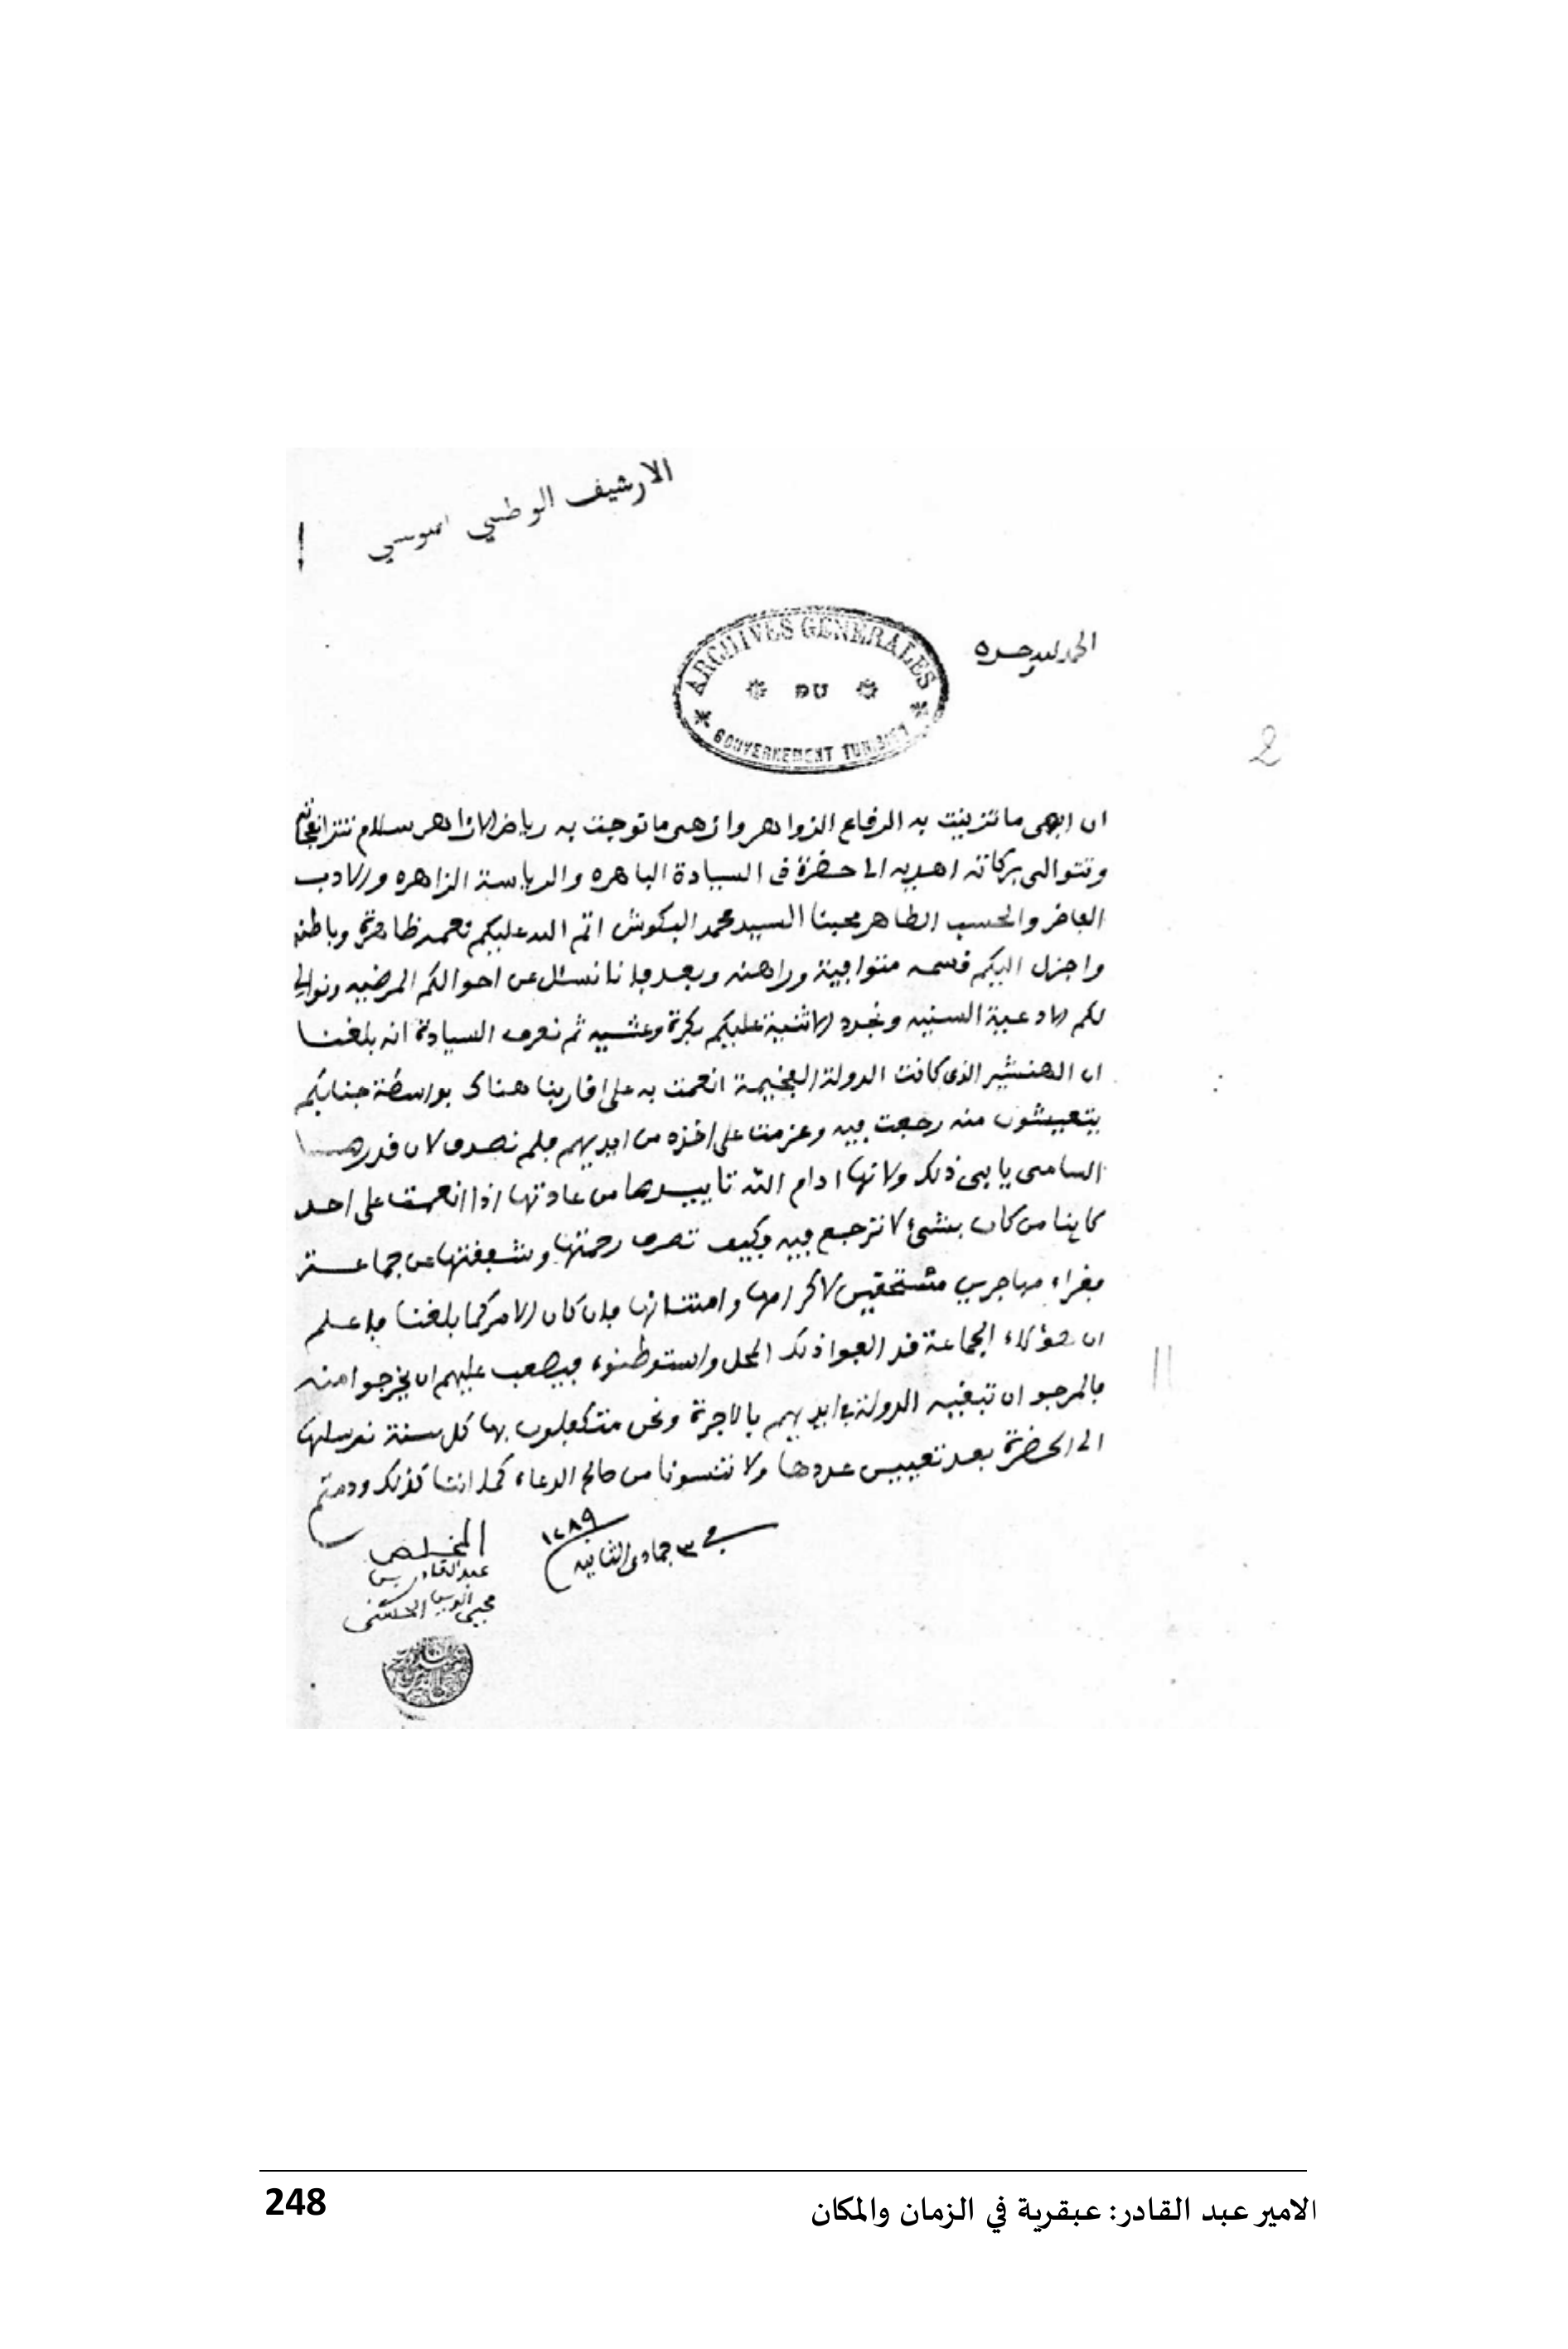 الارشيف الوطني
الحمد لله وحده
ARCHIVES GENERALES
DU
GOUVERNEMENT TUNISIEN
2
ان ابهى ما تزينت به الرقاع الزواهر وازهى ما توجت به رياض الازاهر سلام تتر
وتتوالى بركاته اهديه الى حضرة ذى السيادة الباهره والرياسة الزاهره والادب
الفاخر والحسب الطاهر محبنا السيد محمد البكوش اتم الله عليكم نعمه ظاهرة وباطنه
واجزل اليكم قسمه متوافية وراهنه وبعد فإنا نسئل عن احوالكم المرضيه ونوالي
لكم الادعية السنيه ونجدد الاثنية عليكم بكرة وعشيه ثم نعرف السيادة انه بلغنا
ان الهنشير الذى كانت الدولة الفخيمة انعمت به على اقاربنا هناك بواسطة جنابكم
يتعيشون منه رجعت فيه وعزمت على اخذه من ايديهم فلم نصدق لان قدرها
السامى يابى ذلك ولانها ادام الله تاييدها من عادتها اذا انعمت على احد
كاينا من كان بشئ لا ترجع فيه وكيف تصرف رحمتها وشفقتها عن جماعة
فقراء مهاجرين مستحقين لاكرامها وامتنانها فان كان الامر كما بلغنا فاعلم
ان هؤلاء الجماعة قد الفوا ذلك المحل واستوطنوه فيصعب عليهم ان يخرجوا منه
فالمرجو ان تبقيه الدولة في ايديهم بالاجرة ونحن متكفلون بها كل سنة نرسلها
الى الحضرة بعد تعيين عددها ولا تنسونا من صالح الدعاء كما انا كذلك ودمتم
في ٣ جمادى الثانيه ١٢٨٩
المخلص
عبد القادر بن
محيى الدين الحسني
الامير عبد القادر: عبقرية في الزمان والمكان
248